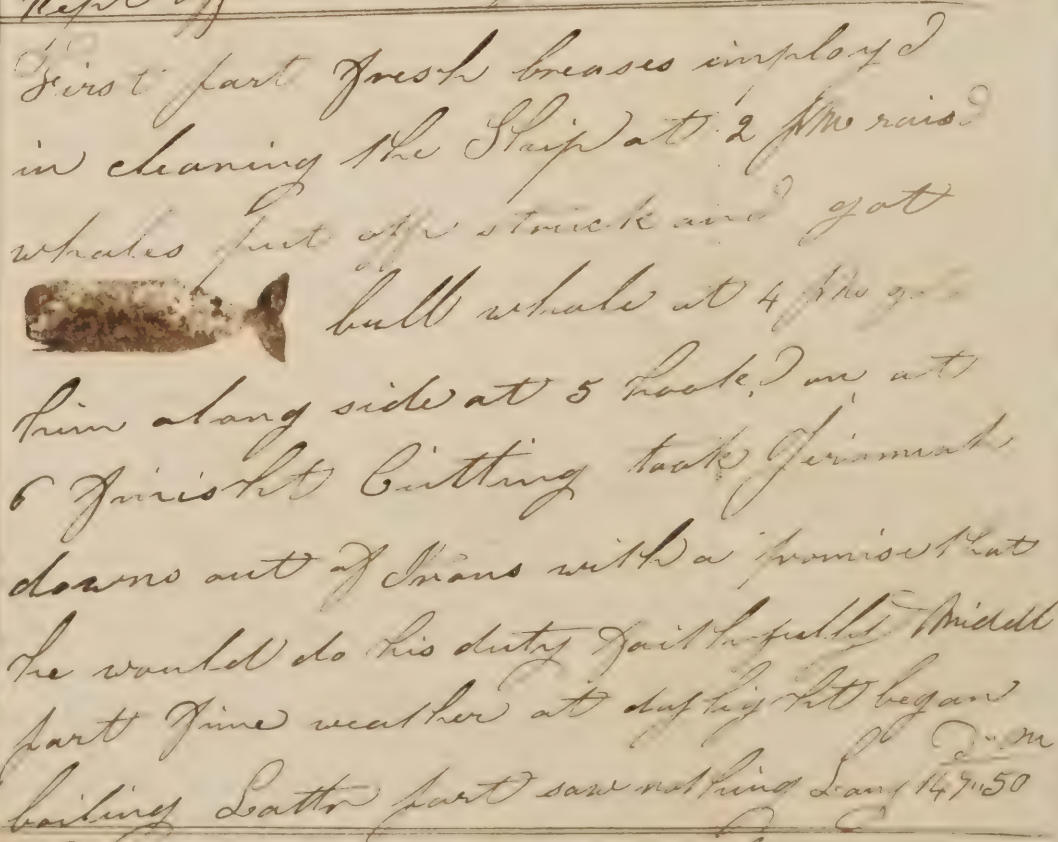 First part Fresh breases imployd
in cleaning the Ship at 2 PM raisd
whales put off struck and got
bull whale at 4 PM
him along side at 5 hookd on at
6 Finisht Cutting took Jerimiah
downs out of Irons with a promise that
he would do his duty Faithfully Middl
part Fine weather at daylight began
boiling Lattr part saw nothing Long 147..50
D.. M